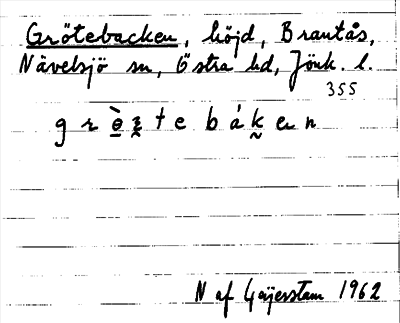 Grötebacken, höjd, Brantås,
Nävelsjö sn, Östra hd, Jönk. l.
355
g r ɵ̀ t e b á k e n
N af Geijerstam 1962